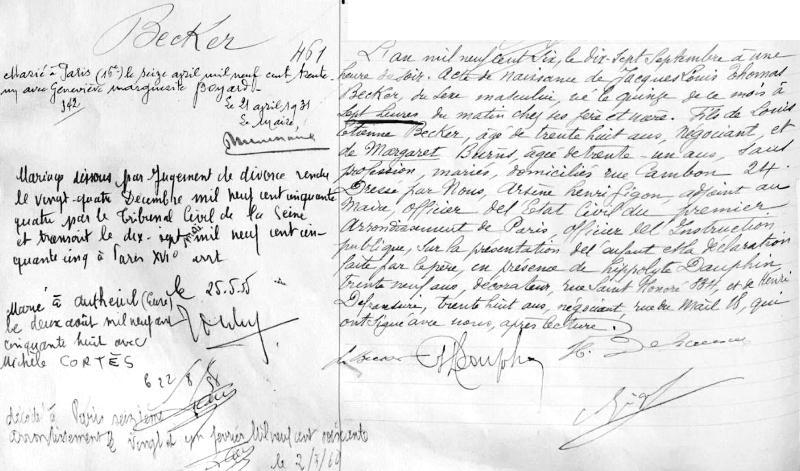 Becker
461
Marié à Paris (16e) le seize avril mil neuf cent trente
un avec Geneviève Marguerite Boyard
342
Le 21 avril 1931
Le Maire
Mariage dissous par Jugement de divorce rendu
le vingt-quatre Décembre mil neuf cent cinquante
quatre par le Tribunal Civil de la Seine
et transcrit le dix-sept mai mil neuf cent cin-
quante cinq à Paris XVIe arrt
le 25.5.55
Marié à Autheuil (Eure)
le deux août mil neuf cent
cinquante huit avec
Michèle CORTÈS
6 22 8 58
décédé à Paris seizième
arrondissement le vingt et un février mil neuf cent soixante
le 2/3/60
L'an mil neuf cent six, le dix-sept Septembre à une
heure du soir. Acte de naissance de Jacques Louis Thomas
Becker, du sexe masculin, né le quinze de ce mois à
sept heures du matin chez ses père et mère. Fils de Louis
Etienne Becker, âgé de trente huit ans, négociant, et
de Margaret Burns, âgée de trente-un ans, sans
profession, mariés, domiciliés rue Cambon 24.
Dressé par Nous, Arsène Henri Bigon, adjoint au
Maire, officier de l'Etat Civil du premier
Arrondissement de Paris, officier de l'Instruction
publique, sur la présentation de l'enfant et la déclaration
faite par le père, en présence de Hippolyte Dauphin
trente neuf ans, décorateur, rue Saint Honoré 334, et de Henri
trente huit ans, négociant, rue du Mail 18, qui
ont signé avec nous, après lecture.
Becker
H.